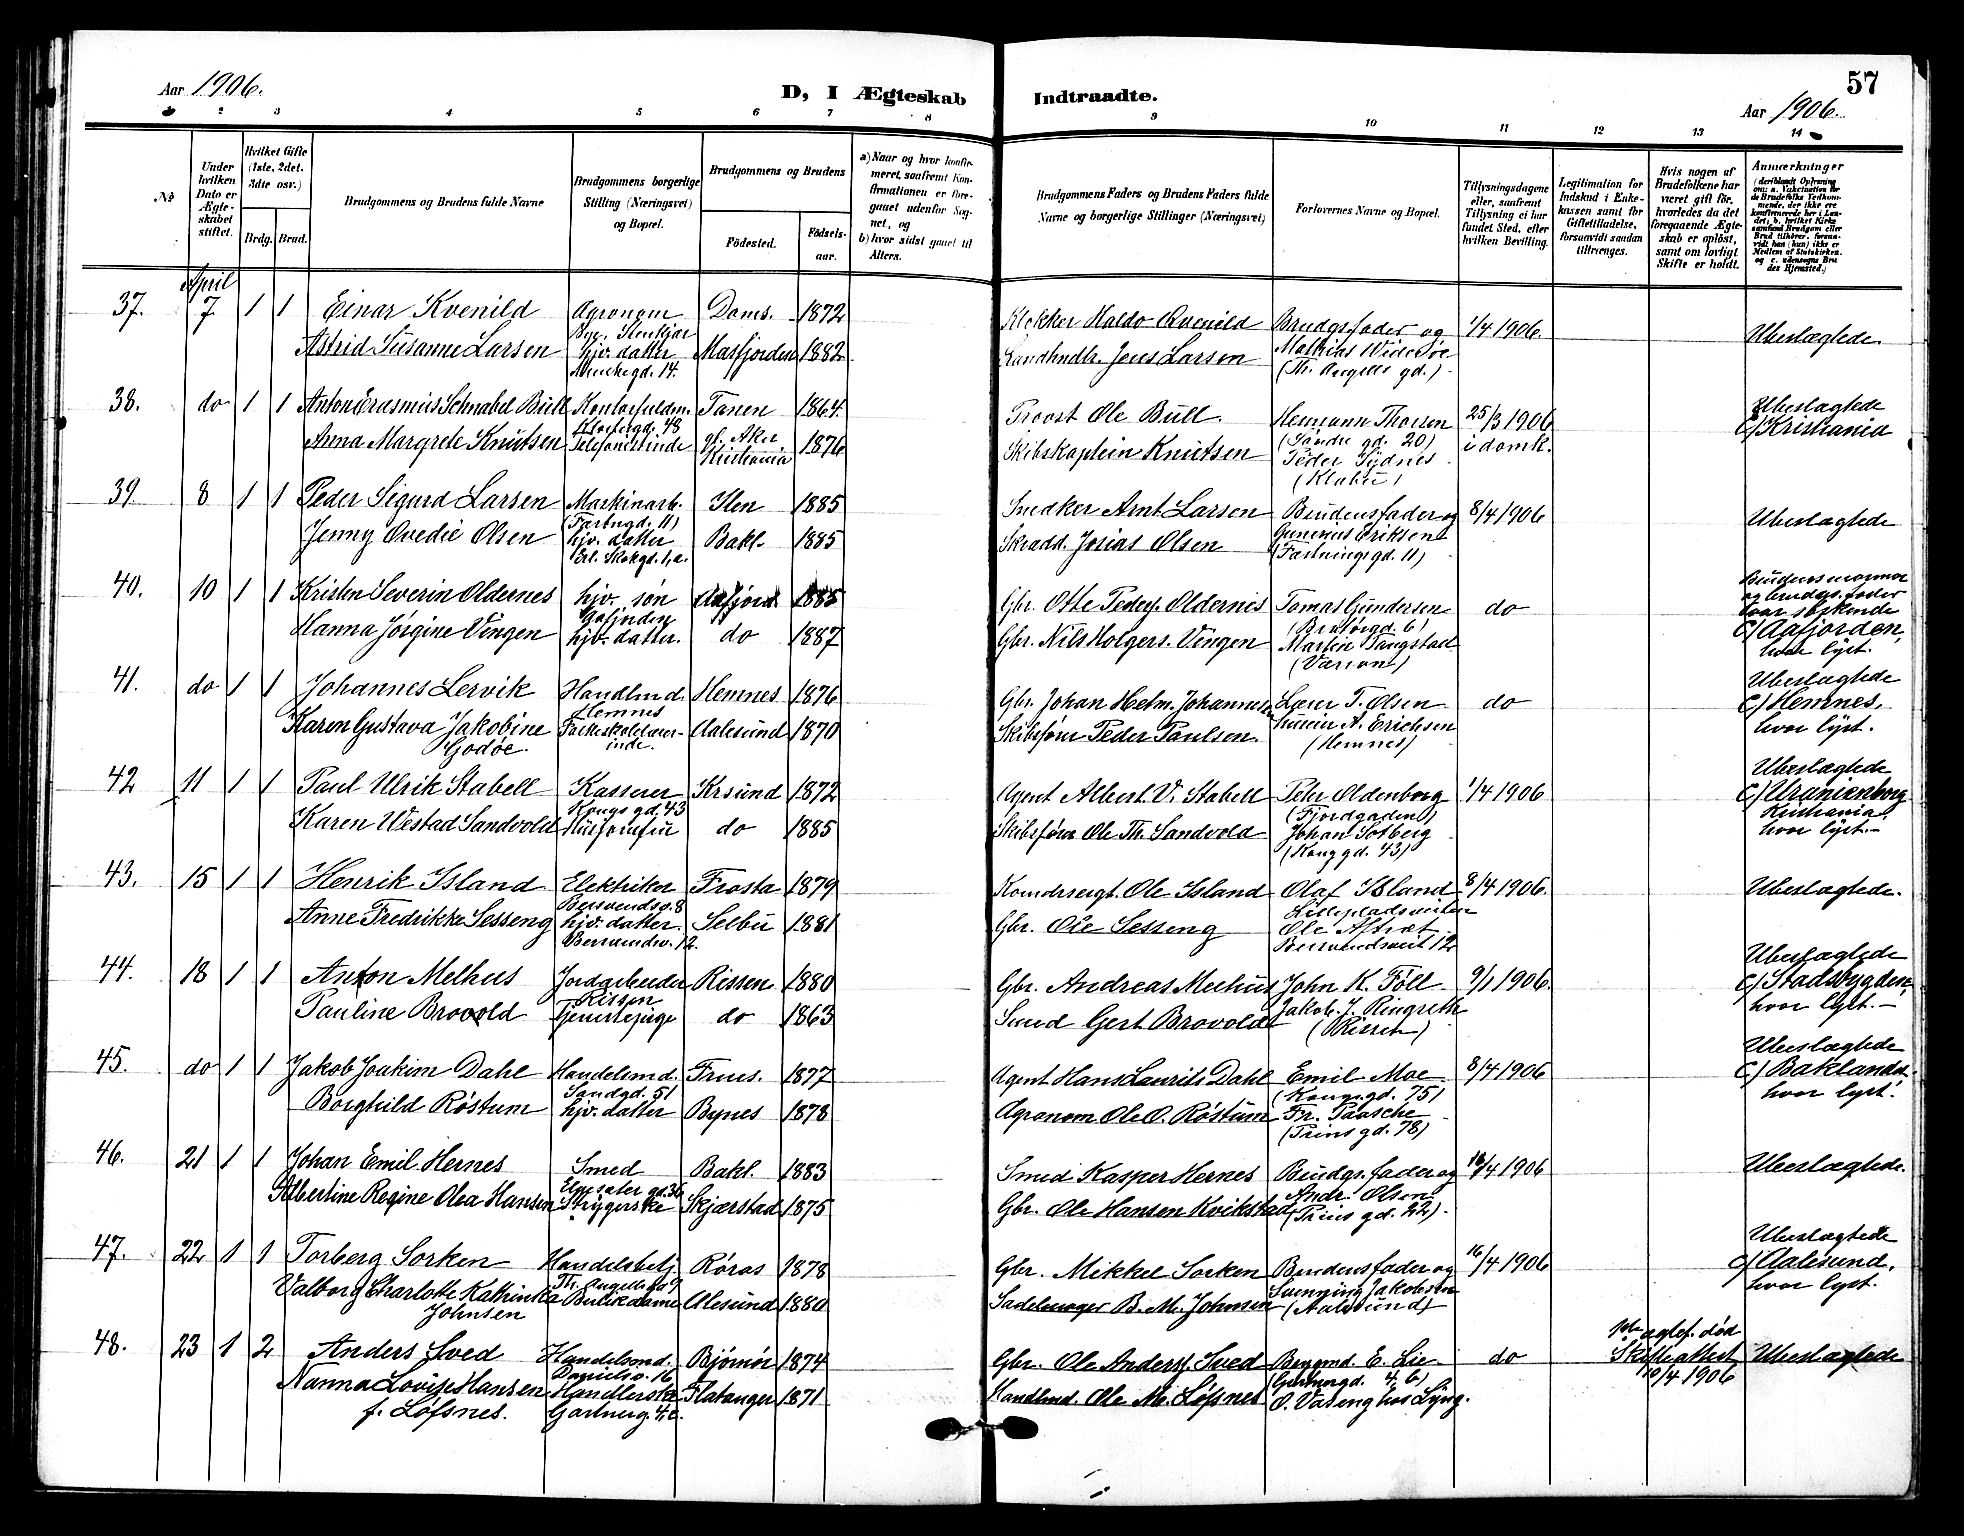 57
Aar 1906.
D, I Ægteskab Indtraadte.
Aar 1906.
1 2 3 4 5 6 7 8 9 10 11 12 13 14
No
Under hvilken Dato er Ægteskabet stiftet.
Hvilket Gifte (1ste, 2det, 3die osv.)
Brdg. Brud.
Brudgommens og Brudens fulde Navne
Brudgommens borgerlige Stilling (Næringsvei) og Bopæl.
Brudgommens og Brudens
Fødested.
Fødselsaar.
a) Naar og hvor konfirmeret, saafremt Konfirmationen er foregaaet udenfor Sognet, og
b) hvor sidst gaaet til Alters.
Brudgommens Faders og Brudens Faders fulde Navne og borgerlige Stillinger (Næringsvei)
Forlovernes Navne og Bopæl.
Tillysningsdagene eller, saafremt Tillysning ei har fundet Sted, efter hvilken Bevilling.
Legitimation for Indskud i Enkekassen samt for Giftetilladelse, forsaavidt saadan tiltrænges.
Hvis nogen af Brudefolkene har været gift før, hvorledes da det foregaaende Ægteskab er opløst, samt om lovligt Skifte er holdt.
Anmærkninger
(deriblandt Oplysning om: a. Vakcination for de Brudefolks Vedkommende, der ikke ere konfirmerede her i Landet; b. hvilket Kirkesamfund Brudgom eller Brud tilhører, forsaavidt han (hun) ikke er Medlem af Statskirken, og c. udensogns Brudes Hjemsted.)
April
37. 7 1 1 Einar Kvenild Agronom Doms. 1872 Klokker Haldo Qvenild Brudgs. fader og 1/4 1906 Ubeslægtede
Stenkjær
Astrid Susanne Larsen hjv. datter Masfjorden 1882 Landhndlr. Jens Larsen Mathias Widerøe
Munkegd. 14. (Th. Angells gd.)
38. do 1 1 Anton Erasmus Schnabel Bull Kontorfuldm. Tanen 1864 Provst Ole Bull. Hemann Thorsen 25/3 1906 Ubeslægtede
Klostergd. 48 (Søndre gd. 20) i domk. c/ Kristiania
Anna Margrete Knutsen Telefonistinde gl. Aker Kristiania 1876 Skibskaptein Knutsen Peder Sydnes
(Klabu)
39. 8 1 1 Peder Sigurd Larsen Maskinarb. Ilen 1885 Snedker Arnt Larsen Brudens fader og 8/4 1906 Ubeslægtede
(Fæstngd. 11)
Jenny Ovedie Olsen hjv. datter Bakl. 1885 Skradd. Josias Olsen Gunerius Eriksen
Erl. Skakgd. 1,a. (Fæstningsgd. 11)
40. 10 1 1 Kristen Severin Oldernes hjv. søn Aafjord. 1885 Gbr. Otte Peders. Oldernes Tomas Gundersen do Brudens mormor og brudgs. fader var søskende
Aafjorden (Bratørgd. 6)
Hanna Jørgine Vingen hjv. datter. do 1887 Gbr. Nils Holgers. Vingen Martin Tangstad c/ Aafjorden, hvor lyst.
41. do 1 1 Johannes Lervik Handlmd. Hemnes 1876 Gbr. Johan Helm. Johannesen Lærer T. Olsen do Ubeslægtede
Hemnes c/ Hemnes,
Karen Gustava Jakobine Godøe. Folkeskolelærerinde. Aalesund 1870 Skibsfører Peder Paulsen. A. Erichsen hvor lyst.
(Hemnes)
42 11 1 1 Paul Ulrik Stabell Kasserer Krsund 1872 Agent Albert V. Stabell Peter Oldenborg 1/4 1906 Ubeslægtede
Kongsgd. 43 (Fjordgaden) c/ Uranienborg Kristiania,
Karen Westad Sandvold Husjomfru do 1885 Skibsfører Ole Th. Sandvold Johan Solberg hvor lyst.
(Kong gd. 43)
43. 15 1 1 Henrik Island Elektriker Frosta 1879 Komdersergt. Ole Island Olaf Island 8/4 1906. Ubeslægtede.
Bersvendsv. 8
Anne Fredrikke Sesseng hjv. datter. Selbu 1881 Gbr. Ole Sesseng Ole Aftret
Bersvendsv. 12. Bersvendsveit 12
44. 18 1 1 Anton Melhus Jordarbeider Rissen 1880 Gbr. Andreas Melhus John K. Føll 9/1 1906. Ubeslægtede
Rissen c/ Stadsbygden,
Pauline Brovold Tjenestepige do 1863 Smed Gert Brovold Jakob J. Ringseth hvor lyst.
(Rissen)
45. do 1 1 Jakob Joakim Dahl Handelsmd. Frues. 1877 Agent Hans Laurits Dahl Emil Moe 8/4 1906 Ubeslægtede
Sandgd. 51 (Kongsgd. 75) c/ Baklandet
Borghild Røstum hjv. datter Bynes 1878 Agronom Ole O. Røstum Fr. Paasche hvor lyst.
(Prinsgd. 78)
46. 21 1 1 Johan Emil Hernes Smed Bakl. 1883 Smed Kasper Hernes Brudgs. fader og 16/4 1906 Ubeslægtede.
Elgesæter gd. 36
Albertine Regine Olea Hansen Strygerske Skjærstad 1875 Gbr. Ole Hansen Kvikstad Andr. Olsen
(Prins gd. 22)
47. 22 1 1 Torberg Sorken Handelsbetj. Røros 1878 Gbr. Mikkel Sorken Brudens fader og 16/4 1906 Ubeslægtede
Th. Angells gd 9 c/ Aalesund,
Valborg Charlotte Kathinka Johnsen Butikdame Alesund 1880 Sadelmager B. M. Johnsen Jakobsen hvor lyst.
(Aalesund)
48. 23 1 2 Anders Sved Handelsmd. Bjørnør 1874 Gbr. Ole Anders. Sved Brygmd. E. Lie do 1ste ægtef. død Skifteattest 10/4 1906 Ubeslægtede
Danielsv. 16 (Gartnergd. 4, 6)
Nanna Lovise Hansen f. Løfsnes. Handlerske Flatanger 1871 Handlmd. Ole M. Løfsnes O. Vaseng hos Lyng.
Gartnerg. 4,c.